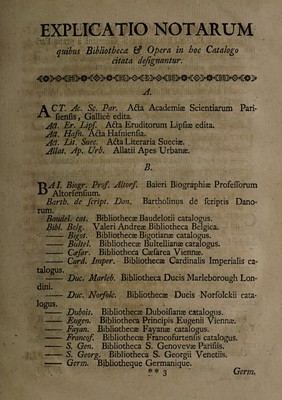 EXPLICATIO NOTARUM
quibus Bibliothecæ & Opera in hoc Catalogo
citata designantur.
A.
ACT. Ac. Sc. Par. Acta Academiæ Scientiarum Pari-
siensis, Gallicè edita.
Act. Er. Lips. Acta Eruditorum Lipsiæ edita.
Act. Hafn. Acta Hafniensia.
Act. Lit. Suec. Acta Literaria Sueciæ.
Allat. Ap. Urb. Allatii Apes Urbanæ.
B.
BAI. Biogr. Prof. Altorf. Baieri Biographiæ Professorum
Altorfensium.
Barth. de script. Dan. Bartholinus de scriptis Dano-
rum.
Baudel. cat. Bibliothecæ Baudelotii catalogus.
Bibl. Belg. Valeri Andreæ Bibliotheca Belgica.
—— Bigot. Bibliothecæ Bigotianæ catalogus.
—— Bultel. Bibliothecæ Bultellianæ catalogus.
—— Cæsar. Bibliotheca Cæsarea Viennæ.
—— Card. Imper. Bibliothecæ Cardinalis Imperialis ca-
talogus.
—— Duc. Marleb. Bibliotheca Ducis Marleborough Lon-
dini.
—— Duc. Norfolc. Bibliothecæ Ducis Norfolckii cata-
logus.
—— Dubois. Bibliothecæ Duboisianæ catalogus.
—— Eugen. Bibliotheca Principis Eugenii Viennæ.
—— Fayan. Bibliothecæ Fayanæ catalogus.
—— Francof. Bibliothecæ Francofurtensis catalogus.
—— S. Gen. Bibliotheca S. Genovevæ Parisiis.
—— S. Georg. Bibliotheca S. Georgii Venetiis.
—— Germ. Bibliotheque Germanique.
** 3 Germ.